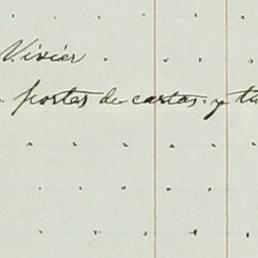 Vivier
portes de cartas y